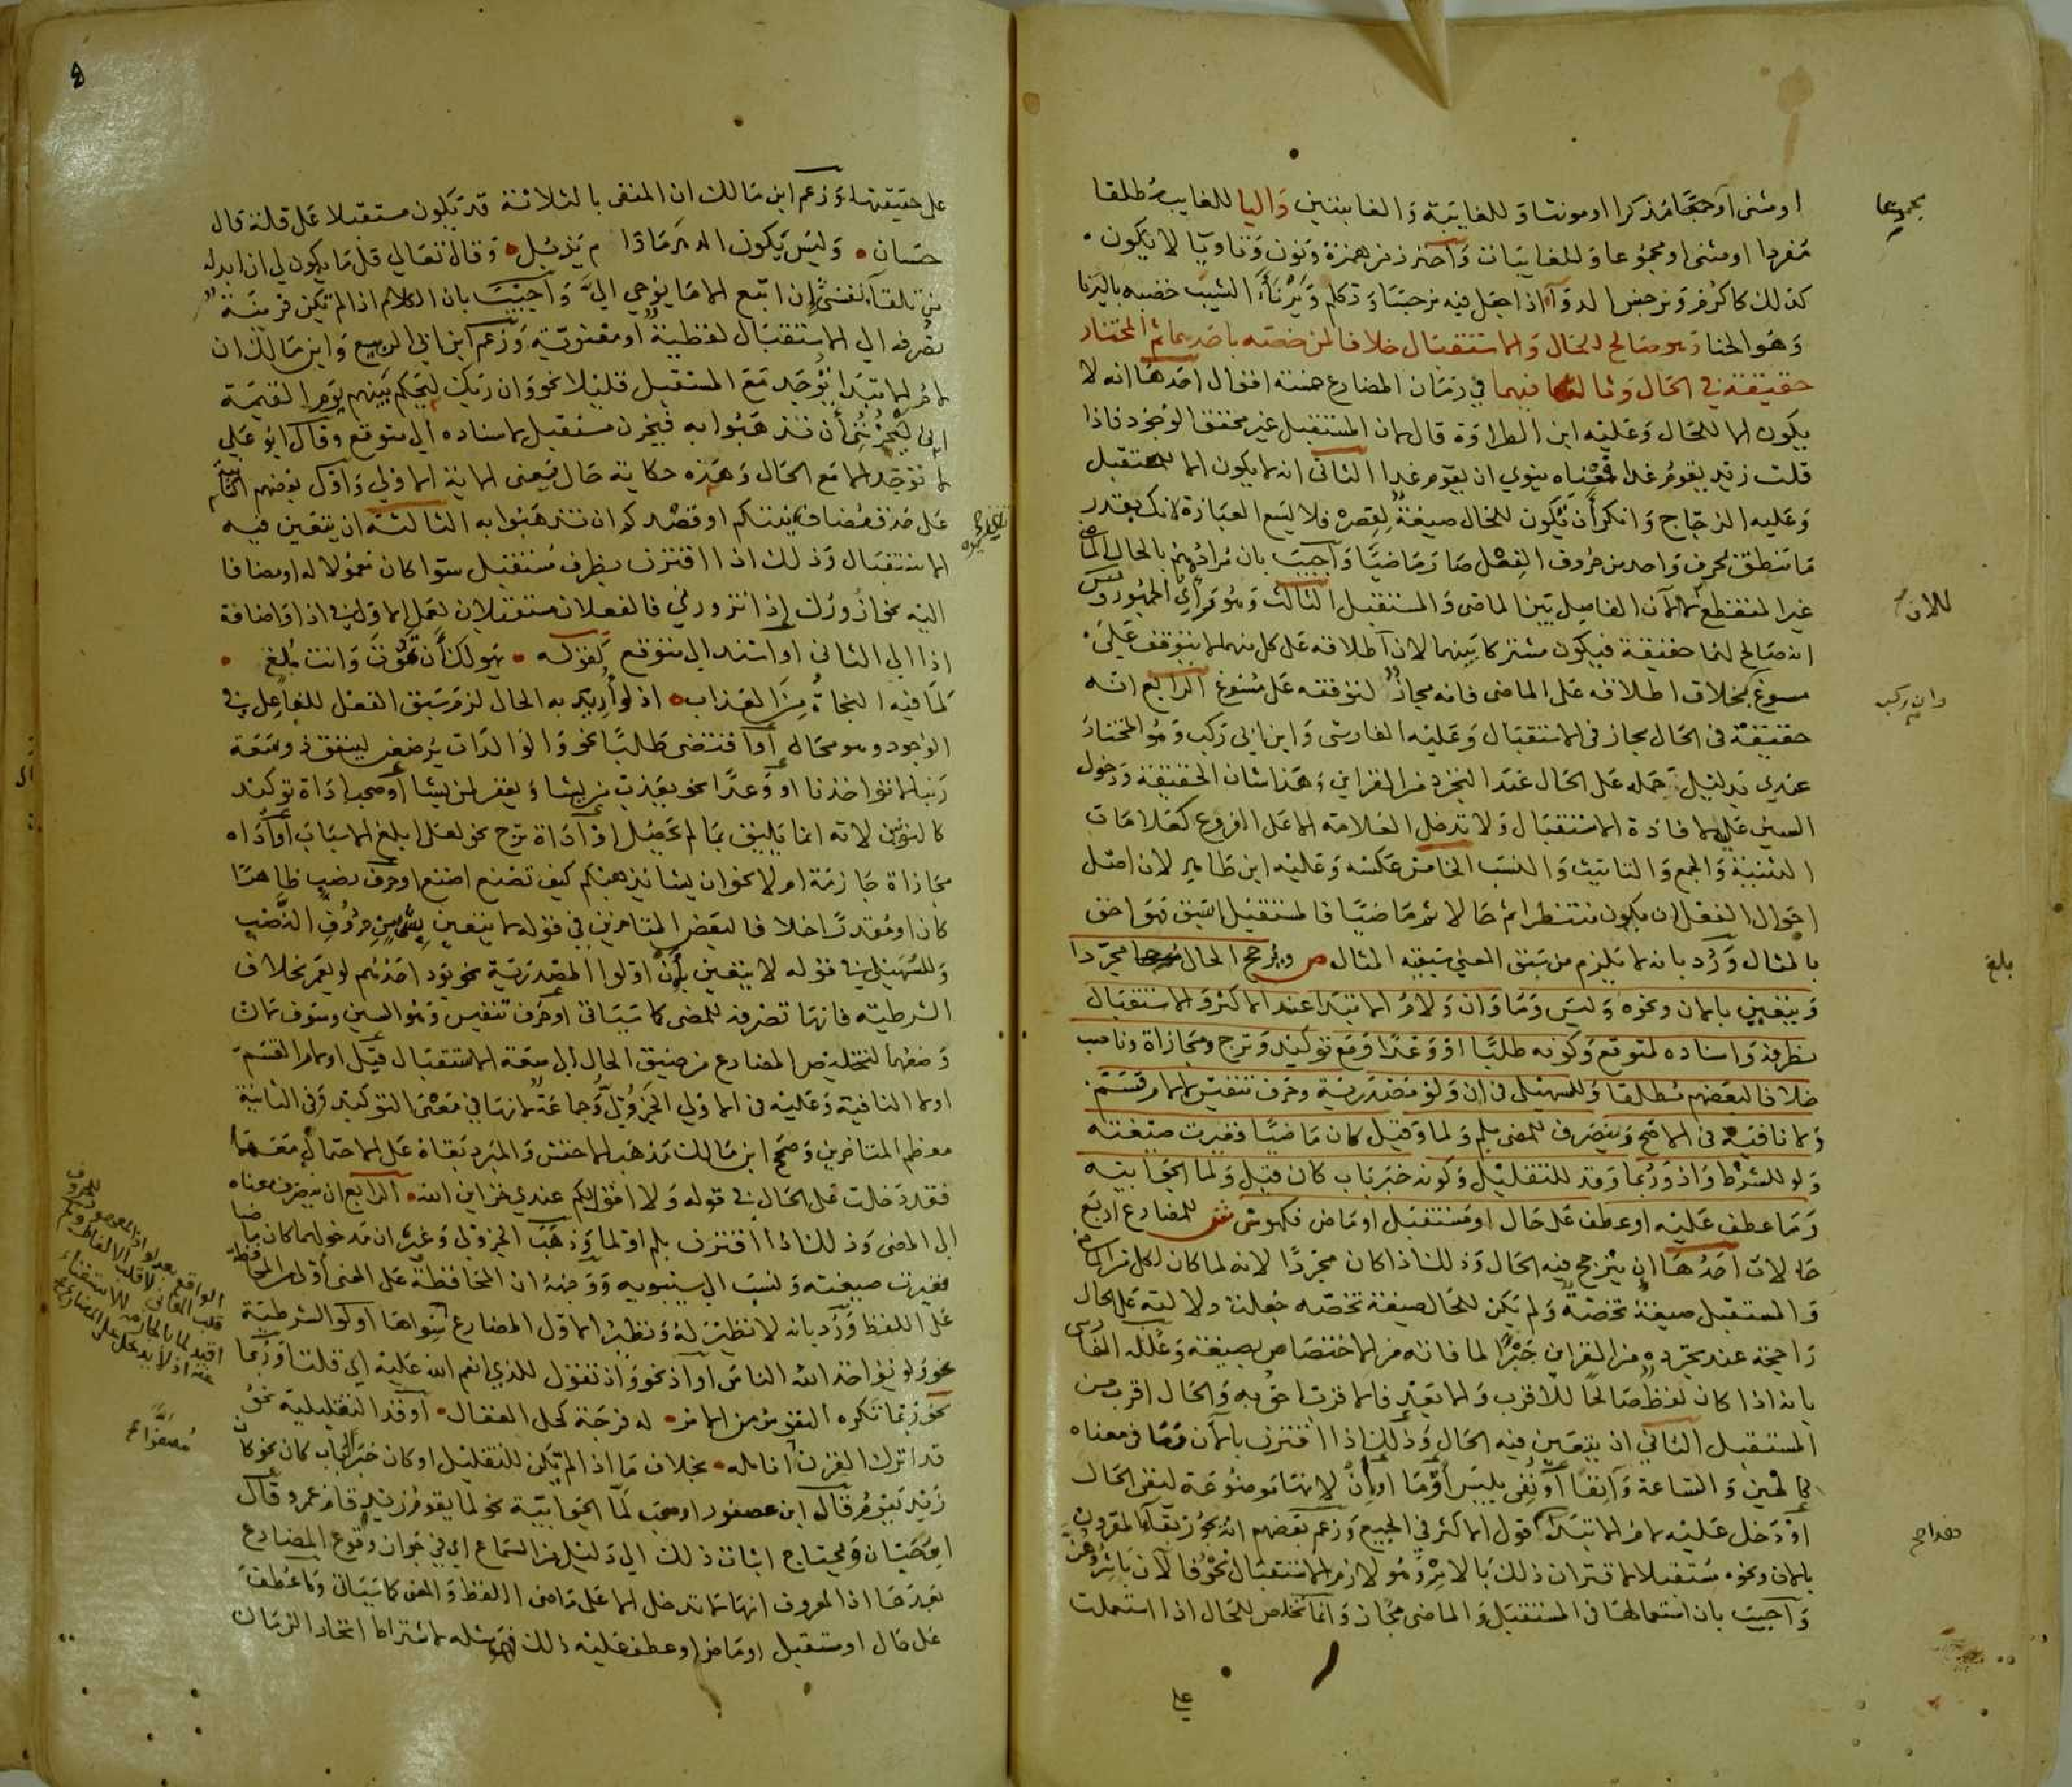 او مثنى او جمعا مذكرا او مونثا و للغايبة و الغايبتين و اليا للغايب مطلقا
مفردا او مثنى او مجموعا و للغايبات و احترز من همزة و نون و تا و يا لا يكون
كذلك كاكرم و نرجس الدوآ اذا جعل فيه نرجسا و تكلم و يرنأ الشيب خضبه باليرنا
و هو الحنا و هو صالح للحال و الاستقبال خلافا لمن خصه باحدهما ثم المختار
حقيقة في الحال و ثالثها فيهما في زمان المضارع خمسة اقوال احدها انه لا
يكون الا للحال و عليه ابن الطراوة قال لان المستقبل غير محقق الوجود فاذا
قلت زيد يقوم غدا فمعناه ينوي ان يقوم غدا الثاني انه لا يكون الا للمستقبل
و عليه الزجاج و انكر أن يكون للحال صيغة لقصره فلا يسع العبارة لانك بقدر
ما تنطق بحرف واحد من حروف الفعل صار ماضيا و اجيب بان مرادهم بالحال الماضي
غير المنقطع لا الآن الفاصل بين الماضي و المستقبل الثالث و هو رأي الجمهور و س
انه صالح لهما حقيقة فيكون مشتركا بينهما لان اطلاقه على كل منهما لا يتوقف على
مسوغ بخلاف اطلاقه على الماضي فانه مجاز لتوقفه على مسوغ الرابع انه
حقيقة في الحال مجاز في الاستقبال و عليه الفارسي و ابن ابي ركب و هو المختار
عندي بدليل حمله على الحال عند التجرد من القراين و هذا شان الحقيقة و دخول
السين عليه لافادة الاستقبال و لا تدخل العلامة الا على الفروع كعلامات
التثنية و الجمع و التانيث و النسب الخامس عكسه و عليه ابن طاهر لان اصل
احوال الفعل ان يكون منتظرا ثم حالا ثم ماضيا فالمستقبل اسبق فهو احق
بالمثال و رد بانه لا يلزم من سبق المعني سبقية المثال ص و يرجح الحال مجردا
و يتعين بالان و نحوه و ليس و ما و ان و لام الابتدا عند الاكثر و الاستقبال
بظرفه و اسناده لمتوقع و كونه طلبا او وعدا و مع توكيد و ترج و مجازاة و ناصب
خلافا لبعضهم مطلقا و للسهيلي في ان و لو مصدرية و حرف تنفيس لا لام قسم
و لا نافية في الاصح و ينصرف للمضي بلم و لما و قيل كان ماضيا فغيرت صيغته
و لو للشرط و اذ و ربما و قد للتقليل و كونه خبر باب كان قيل و لما الجوابية
و ما عطف عليه او عطف على حال او مستقبل او ماض فكهو ش للمضارع اربع
حالات احدها ان يترجح فيه الحال و ذلك اذا كان مجردا لانه لما كان لكل من الماضي
و المستقبل صيغة تخصه و لم يكن للحال صيغة تخصه جعلت دلالته على الحال
راجحة عند تجرده من القراين جبرا لما فاته من الاختصاص بصيغة و علله الفارسي
بانه اذا كان لفظ صالحا للاقرب و الابعد فالاقرب احق به و الحال اقرب من
المستقبل الثاني ان يتعين فيه الحال و ذلك اذا اقترن بالان و ما في معناه
كالحين و الساعة و آنفا او نفي بليس او ما او ان لانها موضوعة لنفي الحال
او دخل عليه لام الابتدا هذا قول الاكثر في الجميع و زعم بعضهم انه يجوز بقآ المقرون
بالان و نحوه مستقبلا لاقتران ذلك بالامر و هو لازم الاستقبال نحو فالآن باشروهن
و اجيب بان استعمالها في المستقبل و الماضي مجاز و انما تخلص للحال اذا استعملت
على
مجموعا
بلغ
على حقيقتها و زعم ابن مالك ان المنفي بالثلاثة قد يكون مستقبلا على قلة قال
حسان و ليس يكون الدهر ما دام يذبل و قال تعالي قل ما يكون لي ان ابدله
من تلقآ نفسي إن اتبع الا ما يوحي اليَّ و اجيب بان الكلام اذا لم تكن قرينة
تصرفه الي الاستقبال لفظية او معنوية و زعم ابن ابي الربيع و ابن مالك ان
لام الابتدا توجد مع المستقبل قليلا نحو و ان ربك ليحكم بينهم يوم القيمة
اني ليحزنني أن تذهبوا به فيحزن مستقبل لاسناده الي متوقع و قال ابو علي
لا توجد الا مع الحال و هذه حكاية حال يعني الاية الاولي و اول بعضهم الثانية
على حذف مضاف نيتكم او قصدكم ان تذهبوا به الثالثة ان يتعين فيه
الاستقبال و ذلك اذا اقترن بظرف مستقبل سوا كان معمولا له او مضافا
اليه نحو ازورك إذا تزورني فالفعلان مستقبلان لعمل الاول في اذا و اضافة
اذا الي الثاني او اسند الي متوقع كقوله يهولك أن تموت و انت ملغ
لما فيه النجاة من العذاب اذ لو اريد به الحال لزم سبق الفعل للفاعل في
الوجود و هو محال او اقتضى طلبا نحو و الوالدات يرضعن لينفق ذو سعة
ربنا لا تواخذنا او وعدا نحو يعذب من يشا و يغفر لمن يشا او صحب اداة توكيد
كالنونين لانه انما يليق بما لم يحصل او اداة ترج نحو لعلي ابلغ الاسباب او أداة
مجازاة جازمة ام لا نحو ان يشا يذهبكم كيف تصنع اصنع او حرف نصب ظاهرا
كان او مقدرا خلافا لبعض المتاخرين في قوله لا يتعين بشي من حروف النصب
و للسهيلي في قوله لا يتعين بأن او لو المصدرية نحو يود احدهم لو يعمر بخلاف
الشرطية فانها تصرفه للمضي كما سياتي او حرف تنفيس و هو السين و سوف لان
وضعهما لتخليص المضارع من ضيق الحال الي سعة الاستقبال قيل او لام القسم
او لا النافية و عليه في الاولي الجزولي و جماعة لانها في معنى التوكيد و في الثانية
معظم المتاخرين و صحح ابن مالك مذهب الاخفش و المبرد بقاه على الاحتمال معهما
فقد دخلت على الحال في قوله و لا اقول لكم عندي خزاين الله الرابع ان ينصرف معناه
الي المضي و ذلك اذا اقترن بلم او لما و ذهب الجزولي و غيره ان مدخولهما كان ماضيا
فغيرت صيغته و نسب الي سيبويه و وجهه ان المحافظة على المعني أولى من المحافظة
على اللفظ و رد بانه لا نظير له و نظير الاول المضارع سواها او لو الشرطية
نحو و لو يؤاخذ الله الناس او اذ نحو و اذ تقول للذي انعم الله عليه اي قلت او ربما
نحو ربما تكره النفوس من الامر له فرجة كحل العقال او قد التقليلية نحو
قد اترك القرن انامله بخلاف ما اذا لم تكن للتقليل او كان خبر الباب كان نحو كان
زيد يقوم قاله ابن عصفور او صحب لما الجوابية نحو لما يقوم زيد قام عمرو قال
ابو حيان و يحتاج اثبات ذلك الي دليل من السماع اي في جواز وقوع المضارع
بعدها اذ المعروف انها لا تدخل الا على ماضي اللفظ و المعنى كما سياتي و ما عطف
على حال او مستقبل او ماض او عطف عليه ذلك فهو مثله لاشتراط اتحاد الزمان